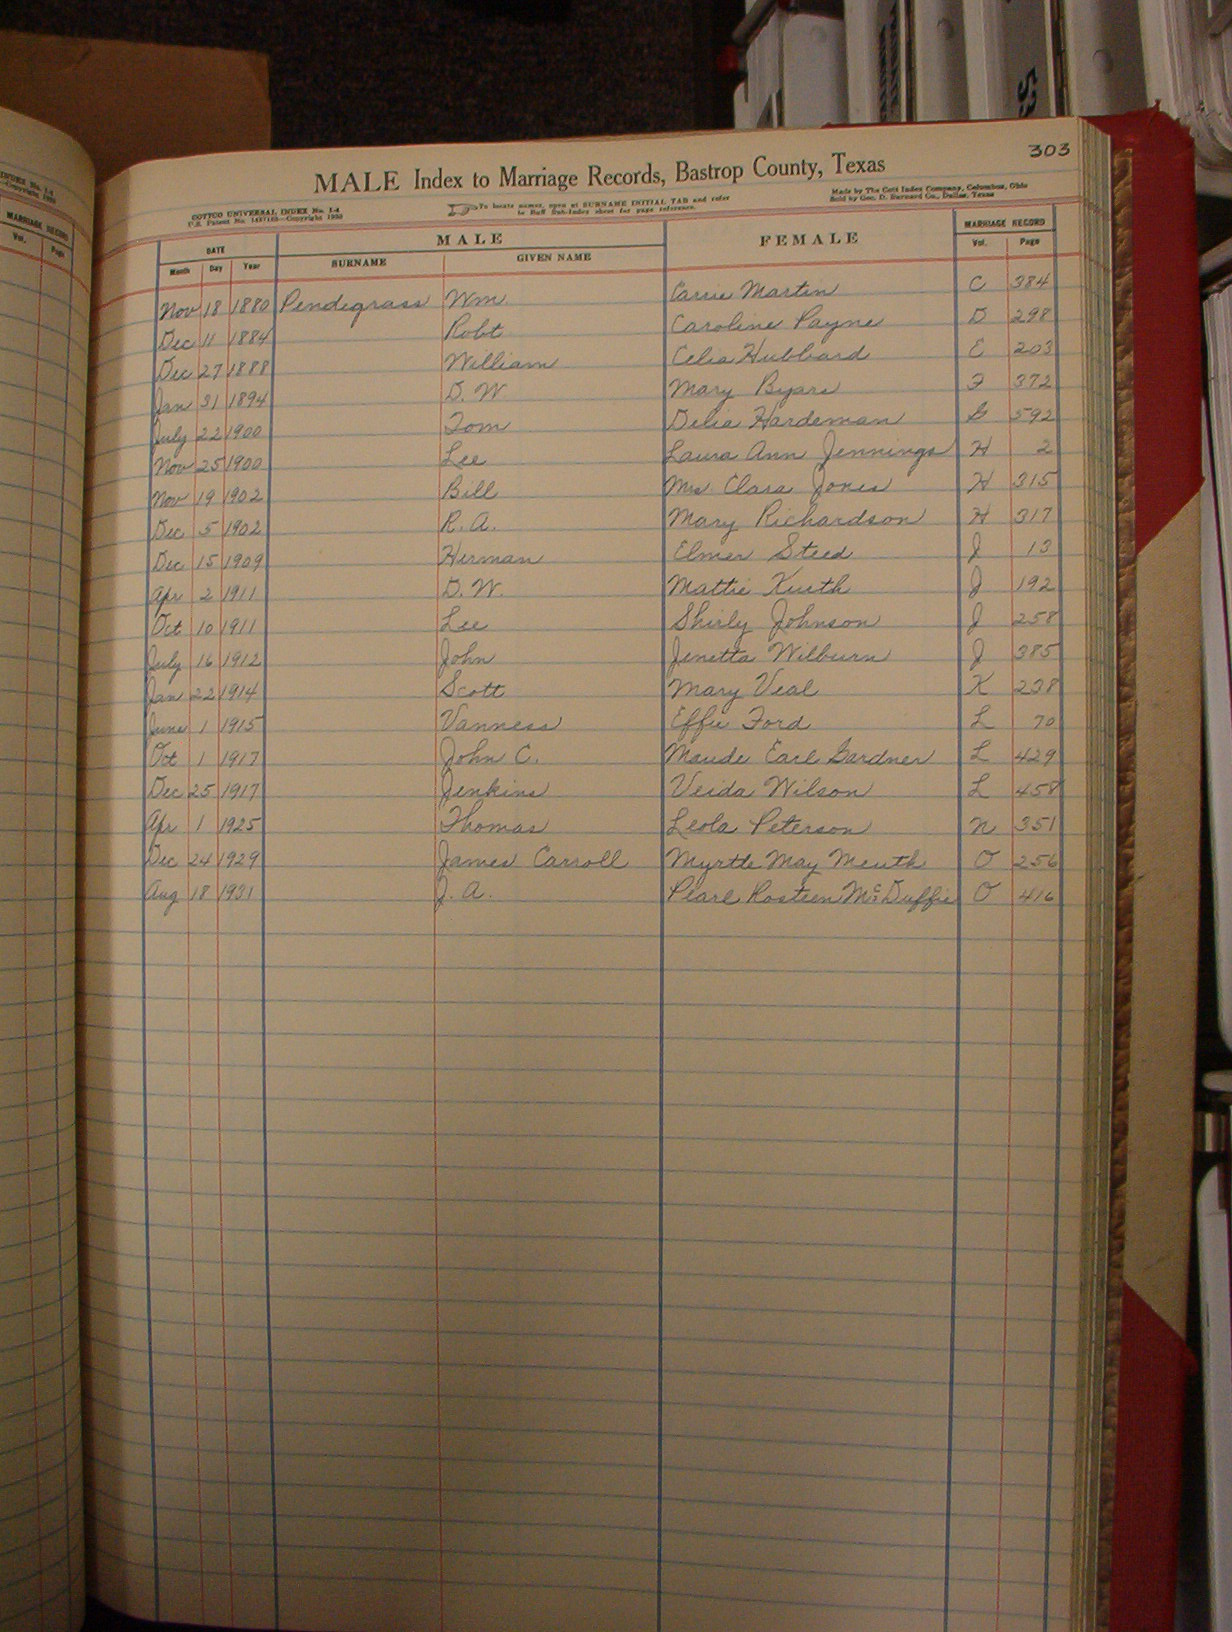 303
MALE Index to Marriage Records, Bastrop County, Texas
COTTCO UNIVERSAL INDEX No. I-4
U.S. Patent No. Copyright 1930
To locate names, open at SURNAME INITIAL TAB and refer
to Buff Sub-Index sheet for page reference.
Made by The Cott Index Company, Columbus, Ohio
Sold by Geo. D. Barnard Co., Dallas, Texas
DATE MALE FEMALE MARRIAGE RECORD
Month Day Year SURNAME GIVEN NAME Vol. Page
Nov 18 1880 Pendegrass Wm Carrie Martin C 384
Dec 11 1884 Robt Caroline Payne D 298
Dec 27 1888 William Celia Hubbard E 203
Jan 31 1894 D. W Mary Byars F 372
July 22 1900 Tom Delia Hardeman G 592
Nov 25 1900 Lee Laura Ann Jennings H 2
Nov 19 1902 Bill Mrs Clara Jones H 315
Dec 5 1902 R. A. Mary Richardson H 317
Dec 15 1909 Herman Elmer Steed J 13
Apr 2 1911 D. W. Mattie Kuth J 192
Oct 10 1911 Lee Shirly Johnson J 258
July 16 1912 John Jenetta Wilburn J 385
Jan 22 1914 Scott Mary Veal K 238
June 1 1915 Vanness Effie Ford L 70
Oct 1 1917 John C. Maude Earl Gardner L 429
Dec 25 1917 Jenkins Veida Wilson L 458
Apr 1 1925 Thomas Leola Peterson N 351
Dec 24 1929 James Carroll Myrtle May Meuth O 256
Aug 18 1931 J. A. Pearl Rosteen McDuffie O 416
MARRIAGE RECORD
Vol. Page